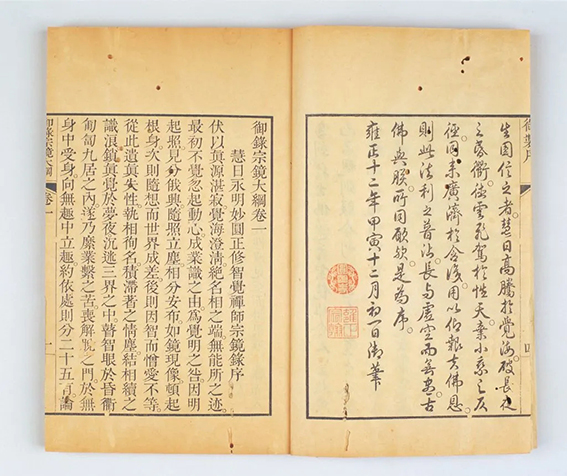 御製序
四
生圓信之者慧日高騰於覺海破長夜
之昏衢使雲飛駕於性天棄小乘之灰
徑同來廣濟於含識用以仰報古佛恩
則此法利之普沾長與虛空而無盡古
佛與朕所同願欲是為序
雍正十二年甲寅十二月初一日御筆
御錄宗鏡大綱卷一
慧日永明妙圓正修智覺禪師宗鏡錄序
伏以眞源湛寂覺海澄淸絶名相之端無能所之迹
最初不覺忽起動心成業識之由為覺明之咎因明
起照見分俄興隨照立塵相分安布如鏡現像頓起
根身次則隨想而世界成差後則因智而憎愛不等
從此遺眞失性執相徇名積滯著之情塵結相續之
識浪鎖眞覺於夢夜沉迷三界之中瞽智眼於昏衢
匍匐九居之內遂乃縻業繫之苦喪解脫之門於無
身中受身向無趣中立趣約依處則分二十五有論
御錄宗鏡大綱
卷一
一